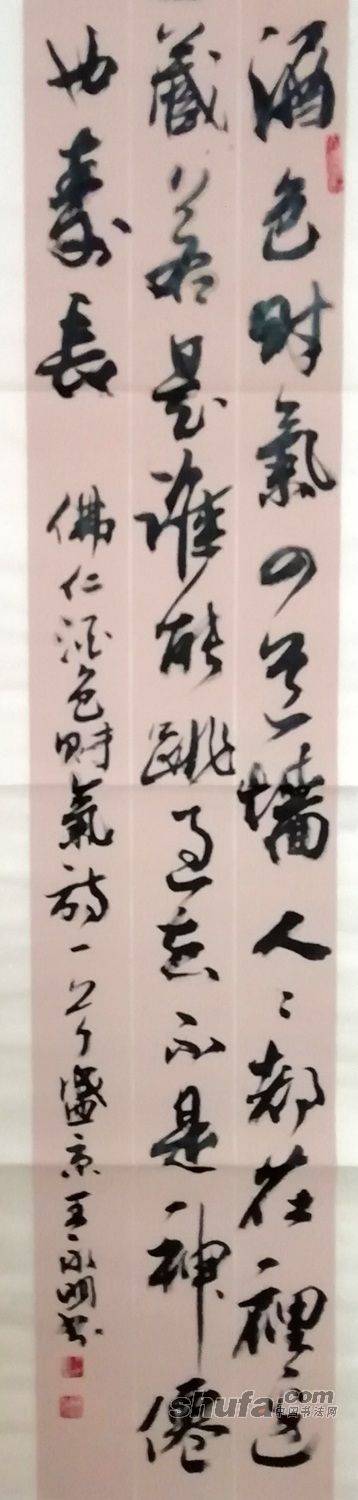 酒色財氣四道墻人々都在裡边
藏若是誰能跳过去不是神僊
也壽長
佛仁酒色財氣詩一首于盛京王永明书
shufa.com
中国书法网